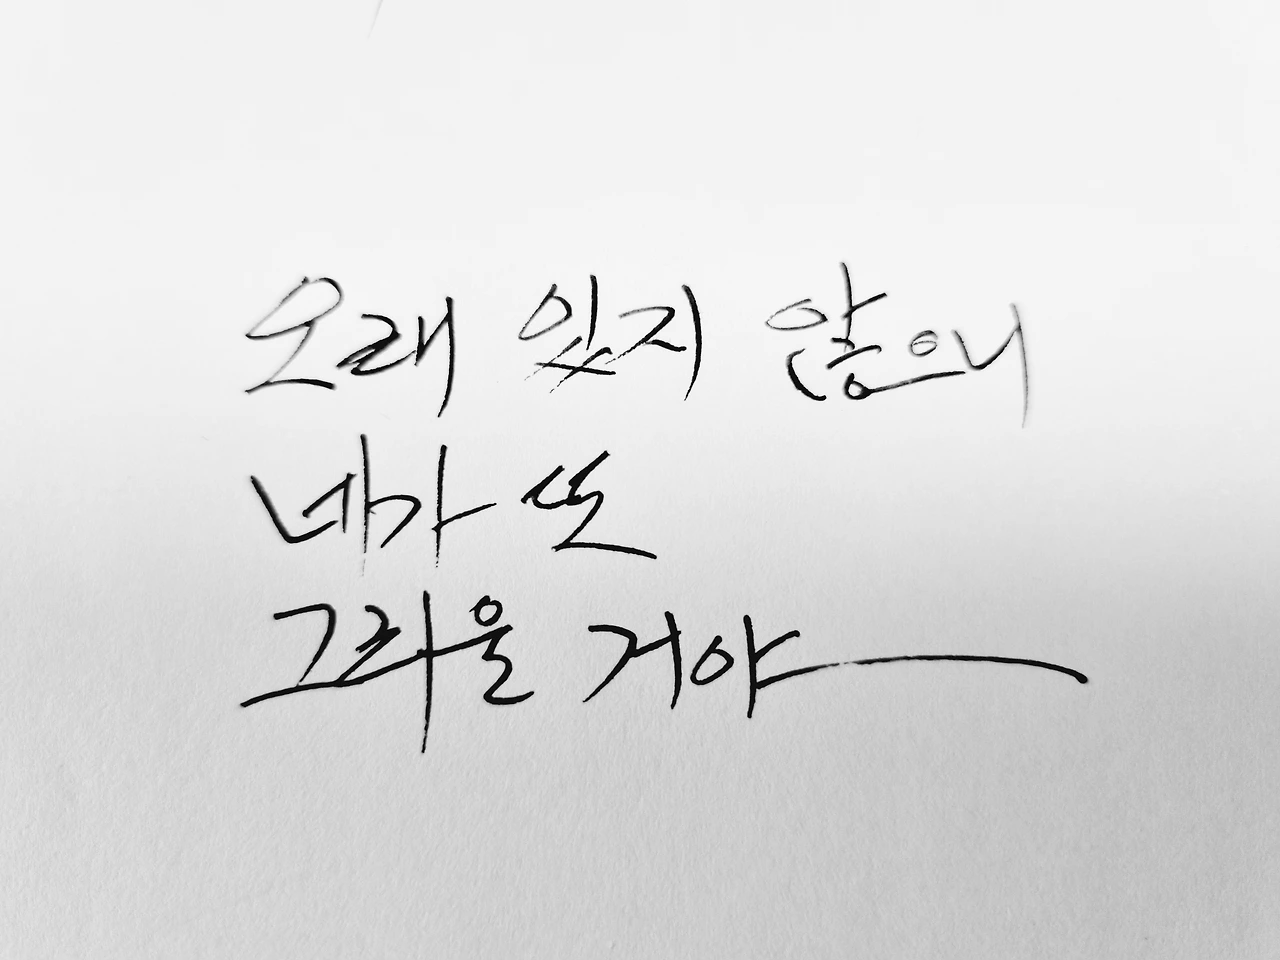 오래 있지 않으니
네가 또
그리울 거야